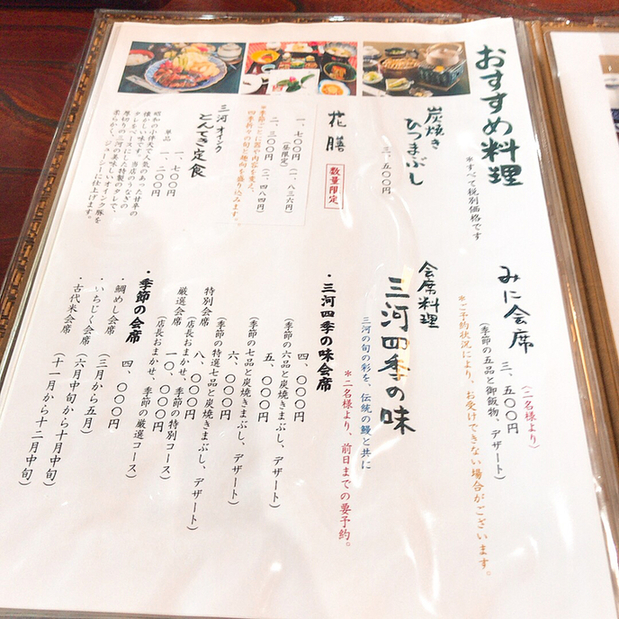 おすすめ料理
＊すべて税別価格です
炭焼き
ひつまぶし
三、五〇〇円
花膳
数量限定
一、七〇〇円（一、八三六円）
（昼限定）
二、三〇〇円（二、四八四円）
＊季節ごとに器や内容を変え、
四季折々の旬と趣向を盛り込みます。
三河オインク
とんてき定食
一、七〇〇円
単品 一、二〇〇円
昭和の小伴天で人気のあった甘辛の
懐かしい味で、当店のうなぎの
タレをベースにした特製のタレで、
厚切りの三河の美味しいオインク豚を
柔らかく、ジューシーに仕上げます。
みに会席
（二名様より）
三、五〇〇円
（季節の五品と御飯物、デザート）
＊ご予約状況により、お受けできない場合がございます。
会席料理
三河四季の味
三河の旬の彩を、伝統の鰻と共に
＊二名様より、前日までの要予約。
・三河四季の味会席
四、〇〇〇円
（季節の六品と炭焼きまぶし、デザート）
五、〇〇〇円
（季節の七品と炭焼きまぶし、デザート）
六、〇〇〇円
（季節の特選七品と炭焼きまぶし、デザート）
特別会席 八、〇〇〇円
（店長おまかせ、季節の特別コース）
厳選会席 一〇、〇〇〇円
（店長おまかせ、季節の厳選コース）
・季節の会席 四、〇〇〇円
・鯛めし会席 （三月から五月）
・いちじく会席 （六月中旬から十月中旬）
・古代米会席 （十一月から十二月中旬）